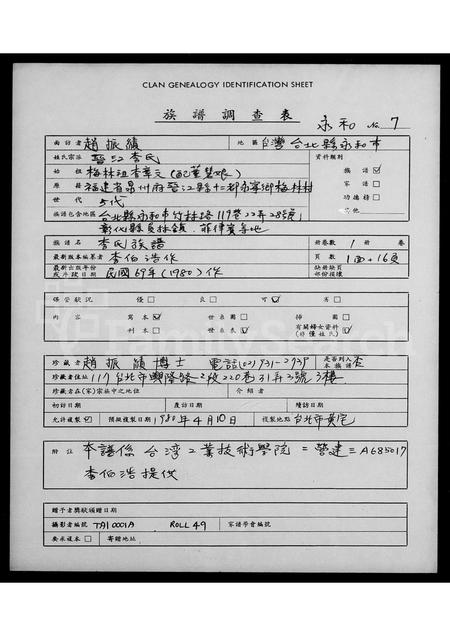 CLAN GENEALOGY IDENTIFICATION SHEET
族譜調查表
永和 No. 7
面訪者 趙振績 地區 台灣台北縣永和市
姓氏宗派 晉江李氏 資料類別
始祖 梅林祖李華元(配葉慧娘) 族譜 ☑
原籍 福建省泉州府晉江縣十二都永寧鄉梅林村 家譜 □
世代 5代 功德榜 □
族譜包含地區 台北縣永和市竹林路119巷22弄28號 其他
彰化縣員林鎮.菲律賓等地
族譜名 李氏族譜 冊卷數 1 冊 卷
最新版本編纂者 李伯浩作 頁數 1面+16頁
最新出版年份或手跋日期 民國69年(1980)作 缺冊缺頁部份損壞
保管狀況 優 □ 良 □ 可 ☑ 劣 □
內容 寫本 ☑ 世系圖 □ 插圖 □
刊本 □ 世系表 ☑ 有關婦女資料(非僅姓氏) ☑
珍藏者 趙振績博士 電話(02)931-2739 是否列入本譜 否
珍藏者住址 117台北市興隆路2段220巷31弄3號3樓
珍藏者在(家)宗族中之地位 介紹者
初訪日期 產訪日期 續訪日期
允許複製 ☑ 預擬複製日期 1980年4月10日 複製地點 台北市黃宅
附註 本譜係台湾工業技術學院=營建三A685017
李伯浩提供
贈予者獎狀頒贈日期
攝影者編號 TA10001A ROLL 49 家譜學會編號
要求複本 □ 寄贈地址
FamilySearch